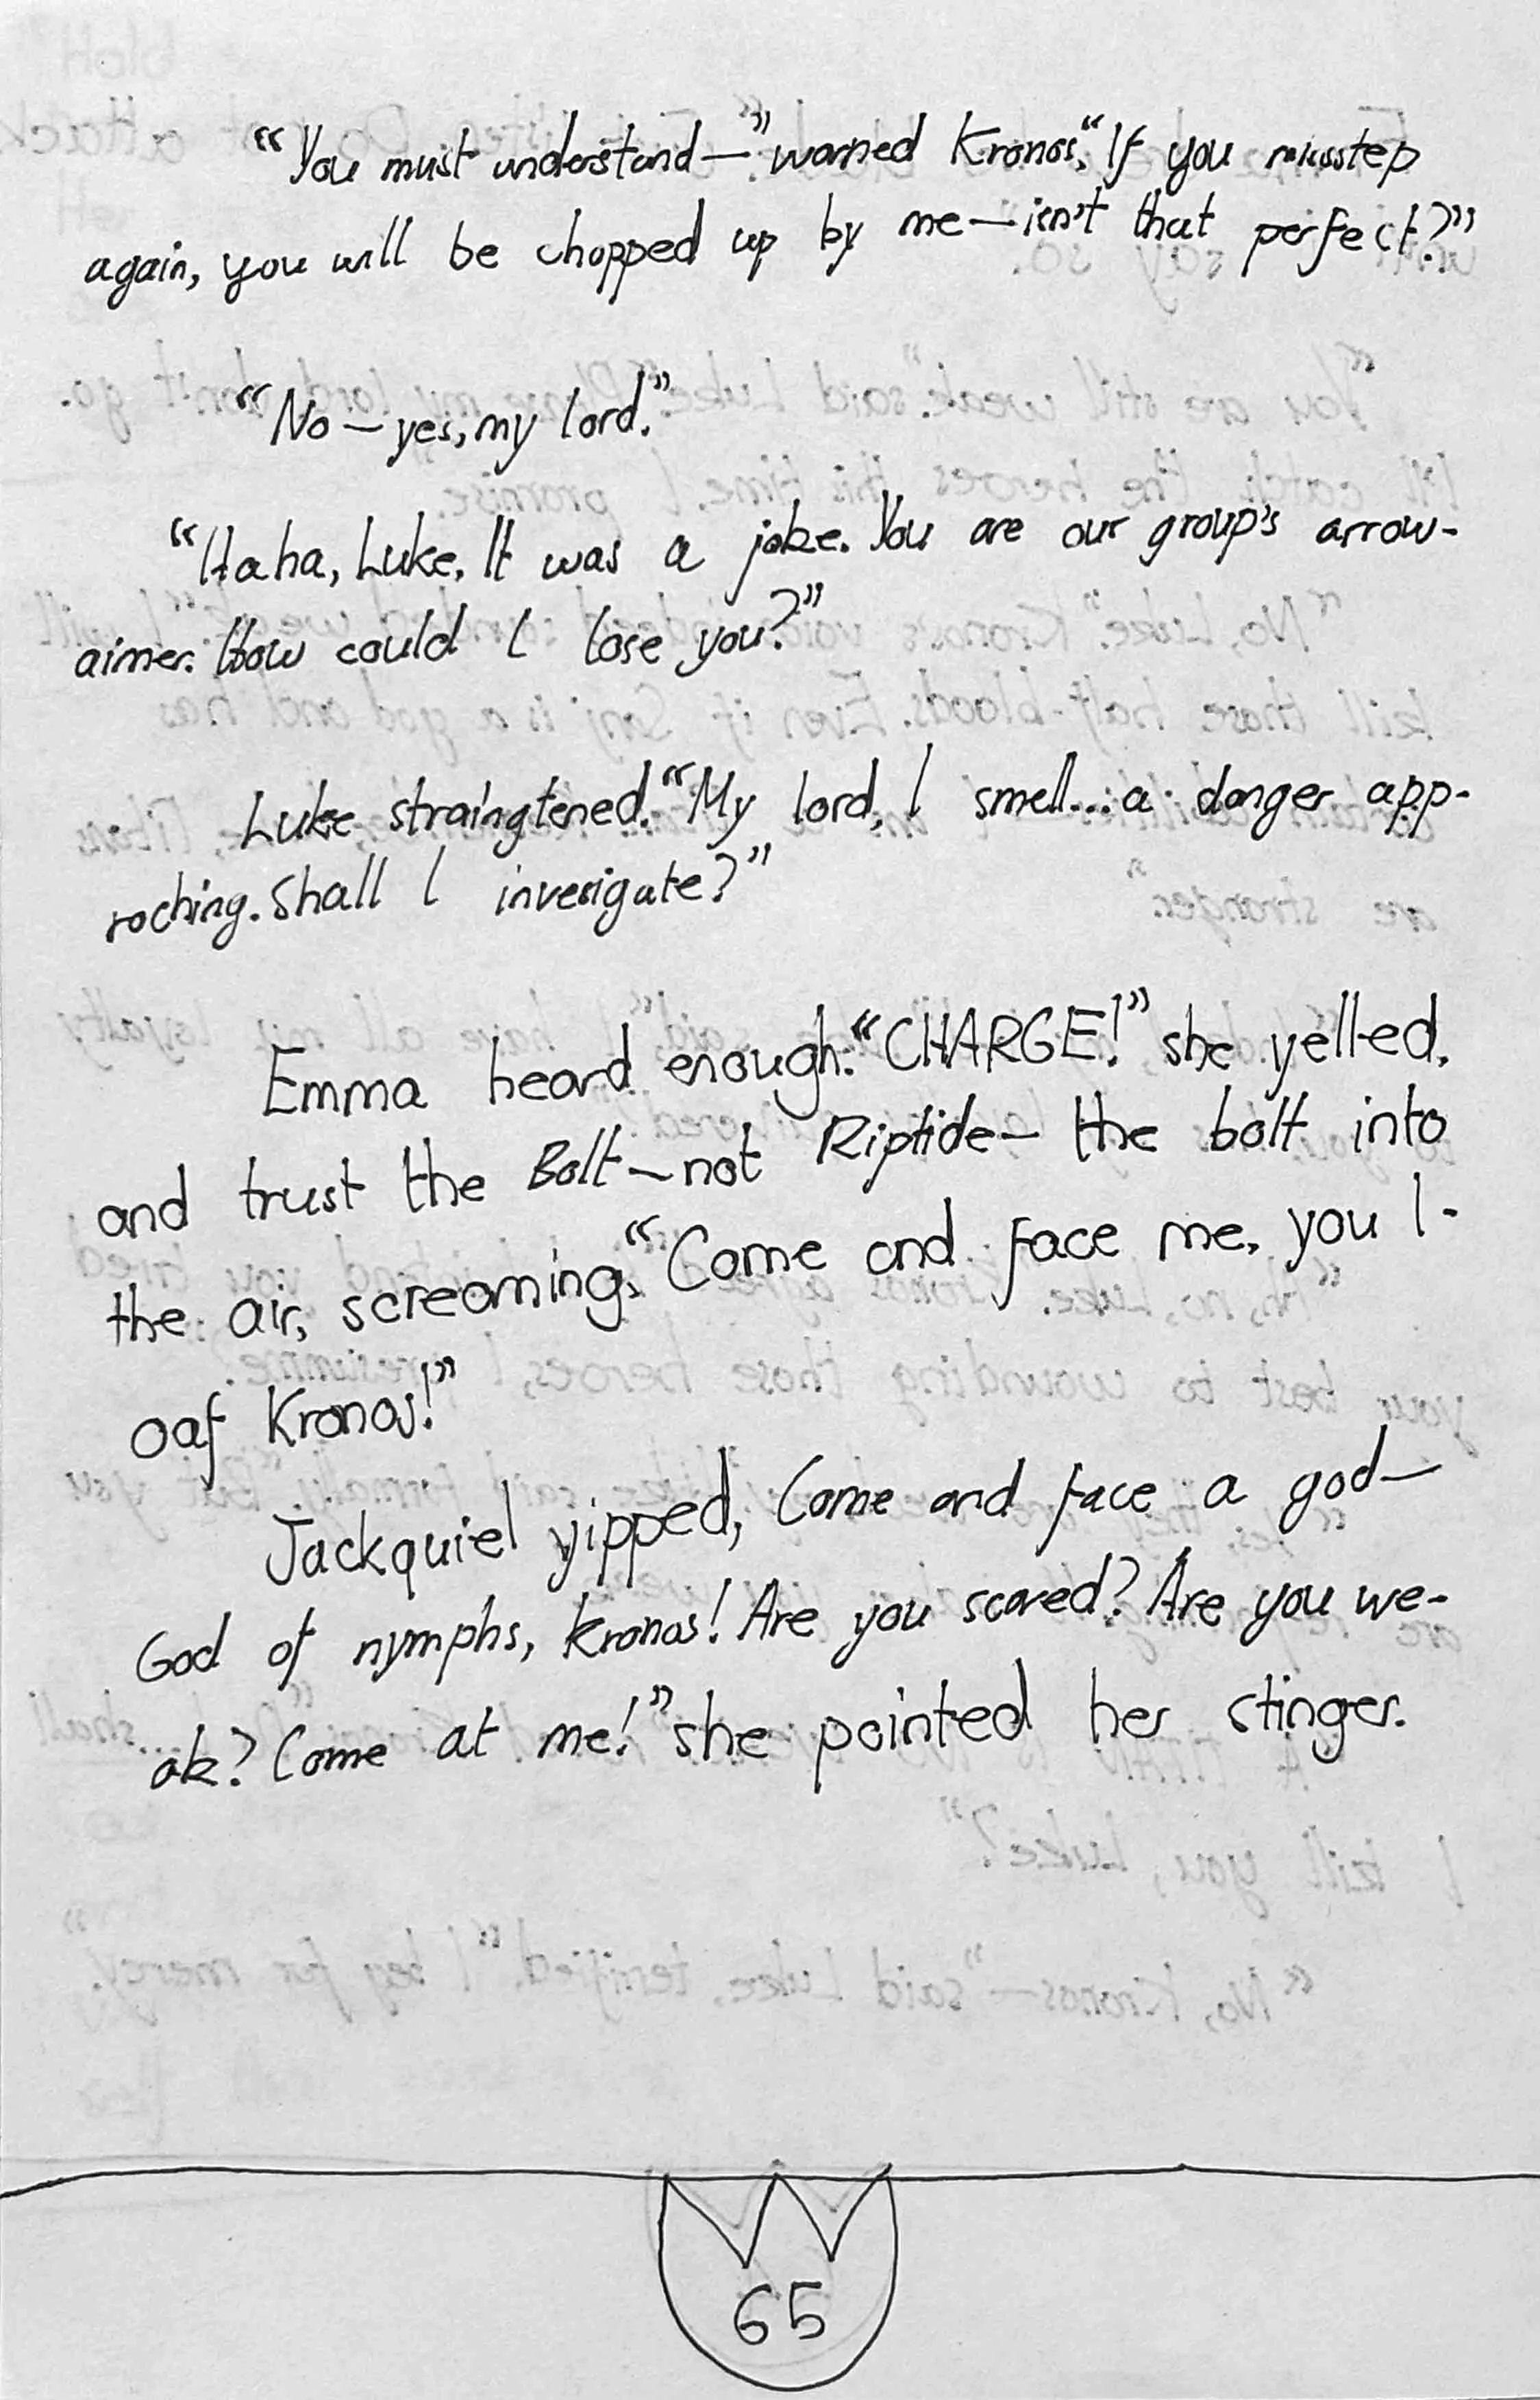 “You must understand—” warned Kronos, “If you missstep
again, you will be chopped up by me—isn't that perfect?”
“No—yes, my lord.”
“Haha, Luke. It was a joke. You are our group's arrow-
aimer. How could I lose you?”
Luke straingtened. “My lord, I smell...a danger app-
roching. Shall I invesigate?”
Emma heard enough. “CHARGE!” she yelled,
and trust the Bolt—not Riptide—the bolt into
the air, screaming, “Come and face me, you l-
oaf Kronos!”
Jackquiel yipped, Come and face a god—
God of nymphs, Kronos! Are you scared? Are you we-
ak? Come at me!” she pointed her stinger.
65